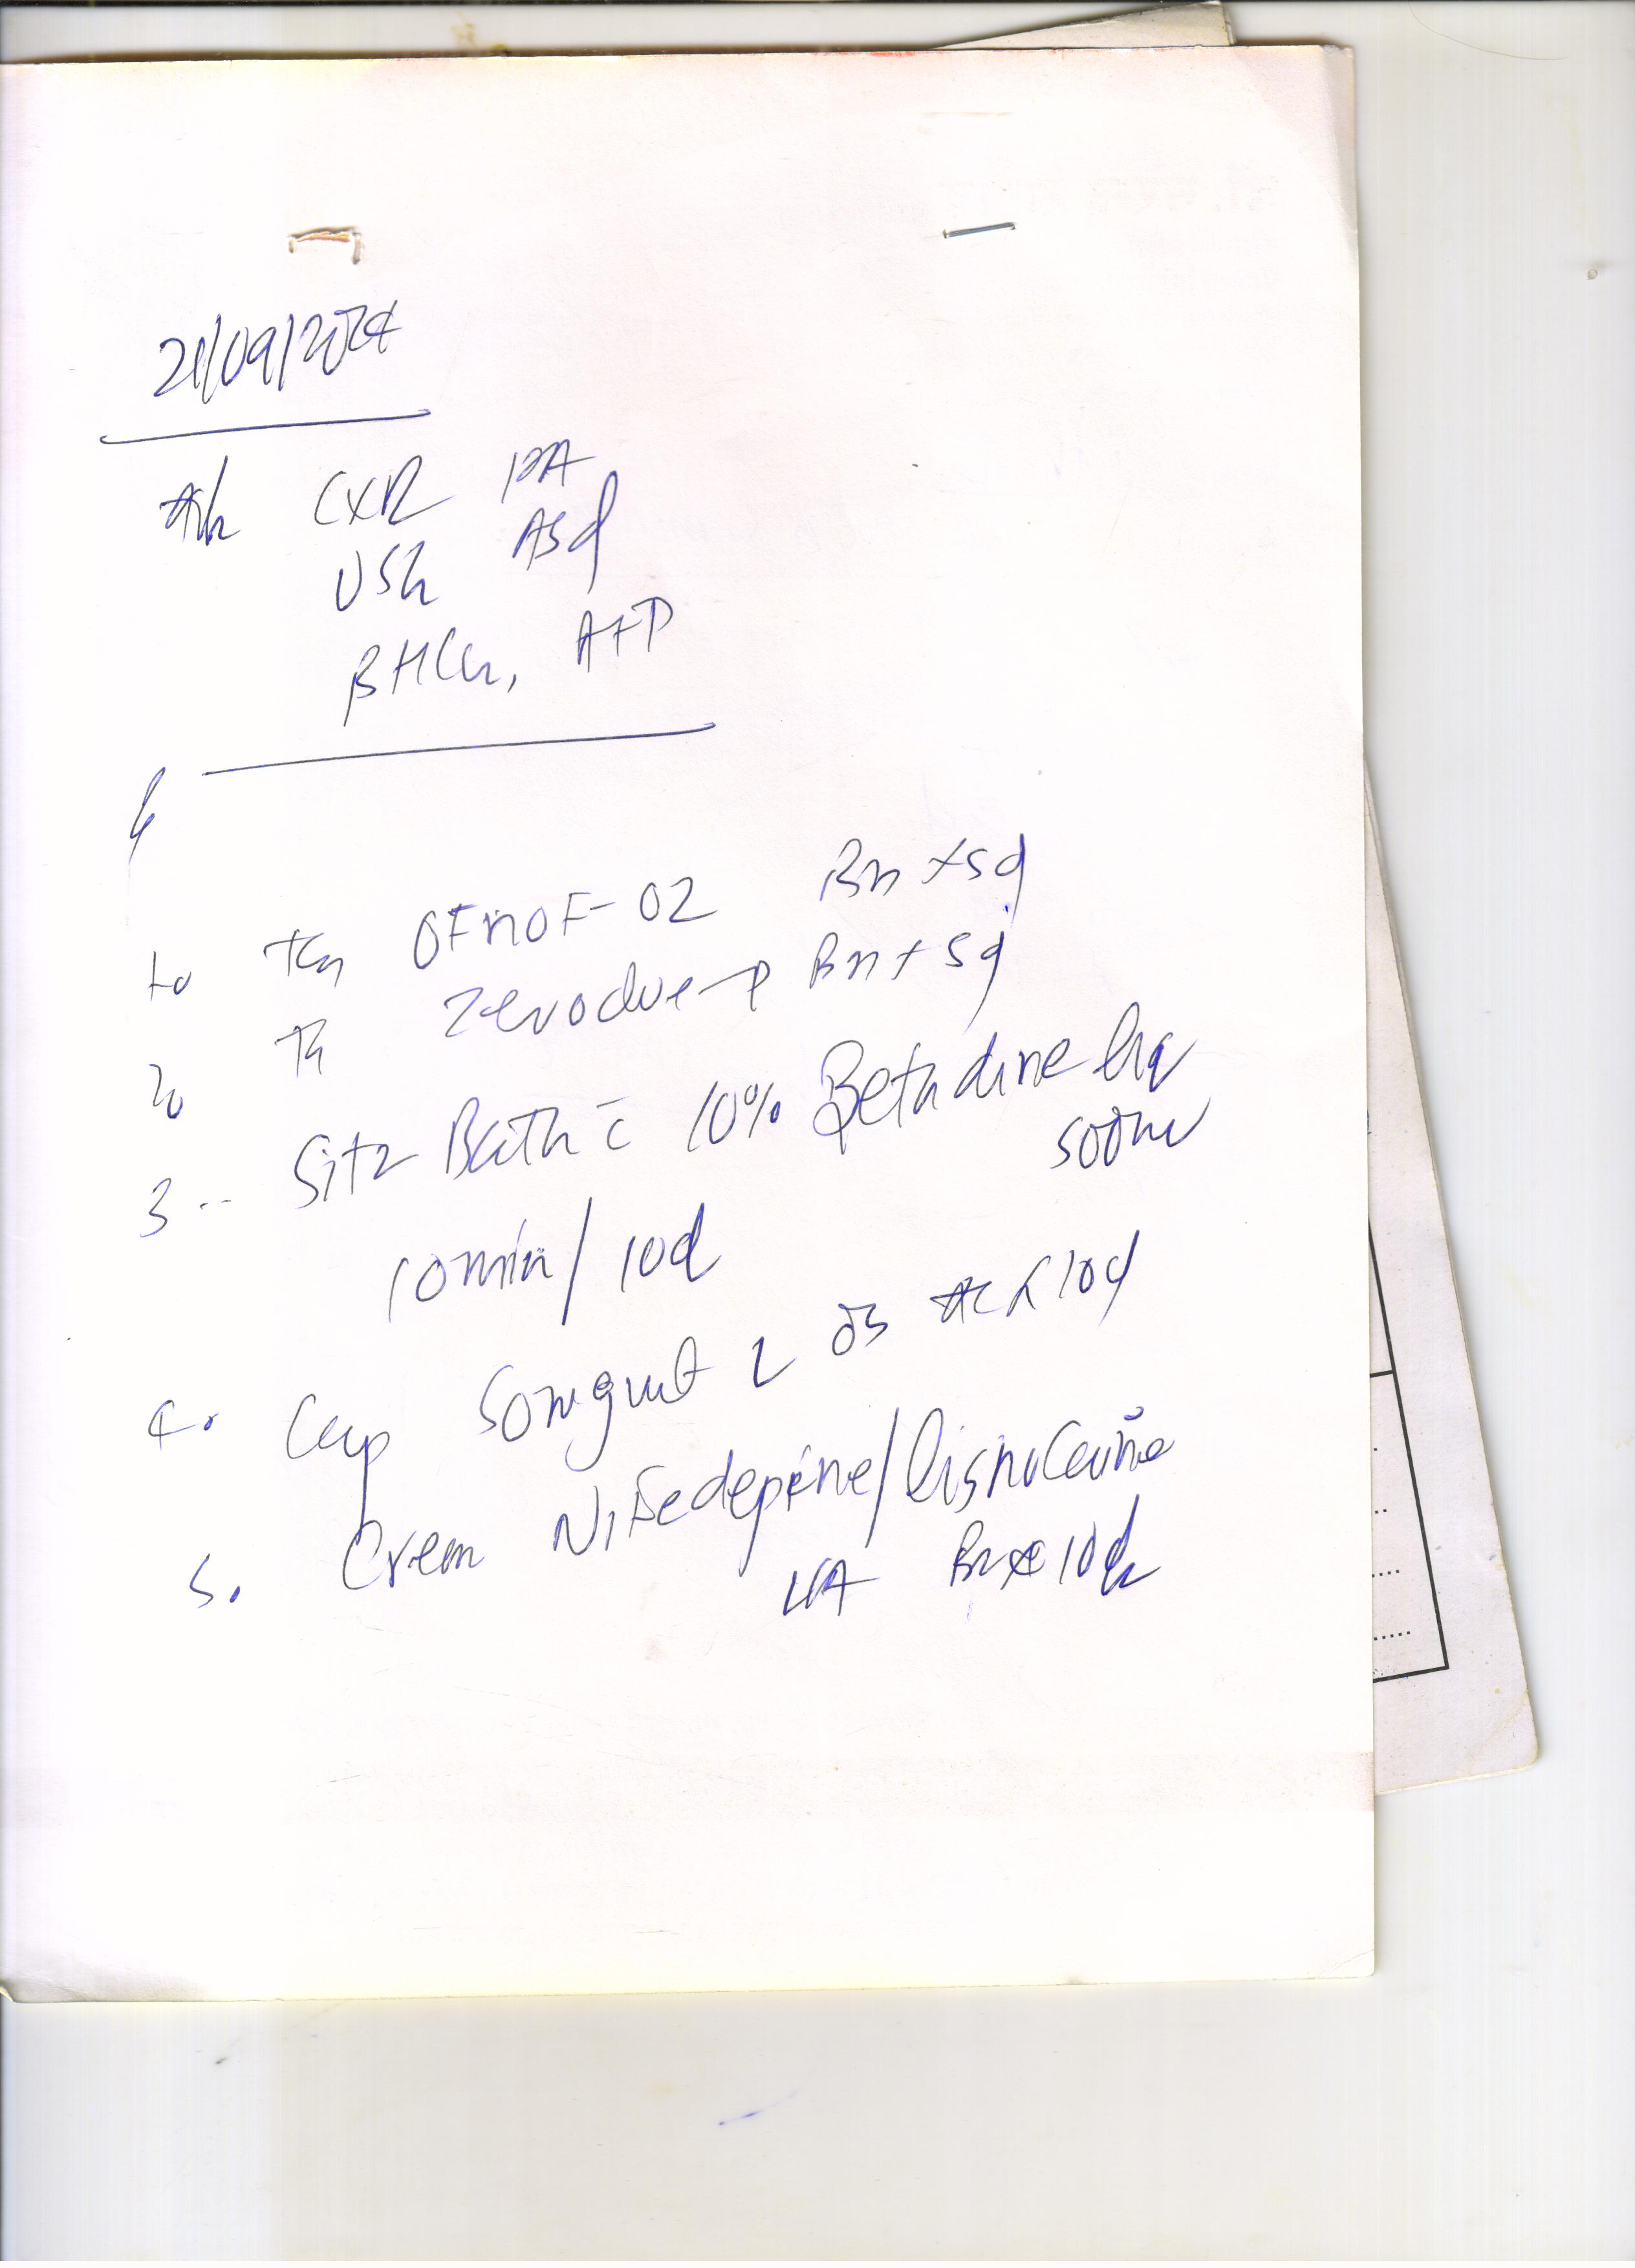 21/09/2024
CXR PA
USG Asd
BHCG, AFP
1. Tab OFnOF-02 BD x 5d
2. Tab Zerodue-P BD x 5d
3. Sitz Bath c̄ 10% Betadine liq
500ml
10min/ 10d
4. Cap 2 10d
5. Crem NiFedepine/lignocaine
LA BD x 10d